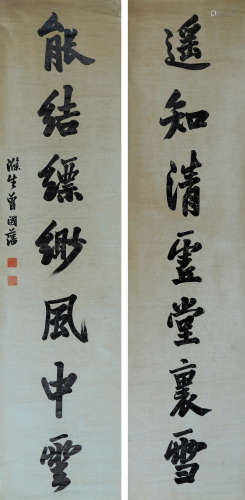 遥知清虚堂裏雪
能结缥缈風中雲
滌生曾國藩